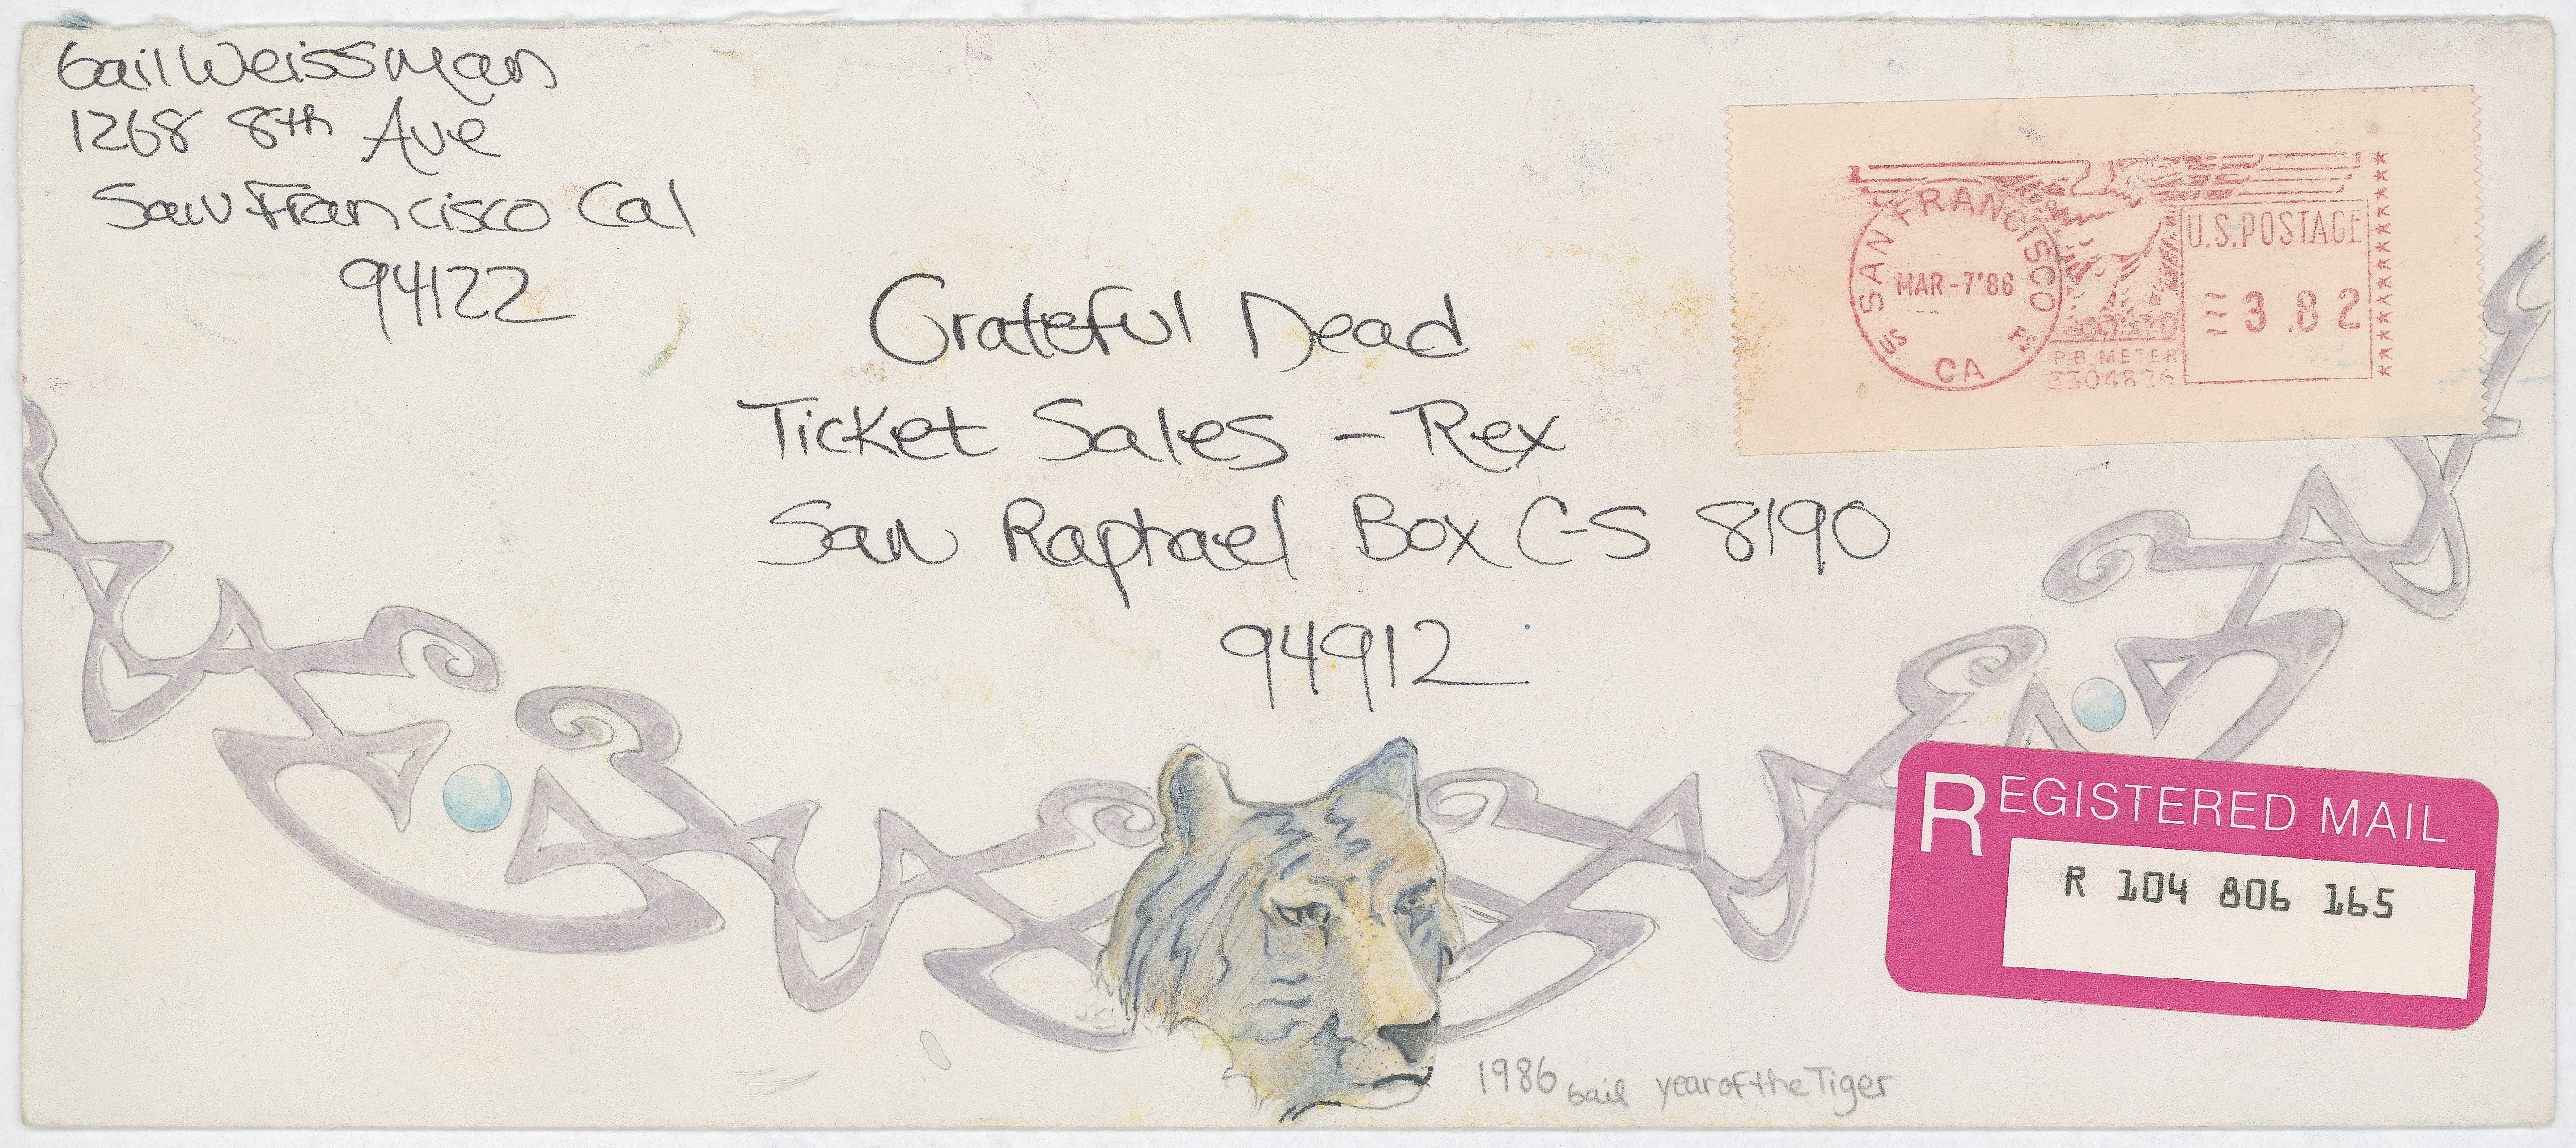 Gail Weissman
1268 8th Ave
San Francisco Cal
94122
SAN FRANCISCO
MAR-7'86
US PS
CA
P.B. METER
3304826
U.S. POSTAGE
3.82
Grateful Dead
Ticket Sales - Rex
San Raphael Box C-S 8190
94912
REGISTERED MAIL
R 104 806 165
1986 Gail year of the Tiger